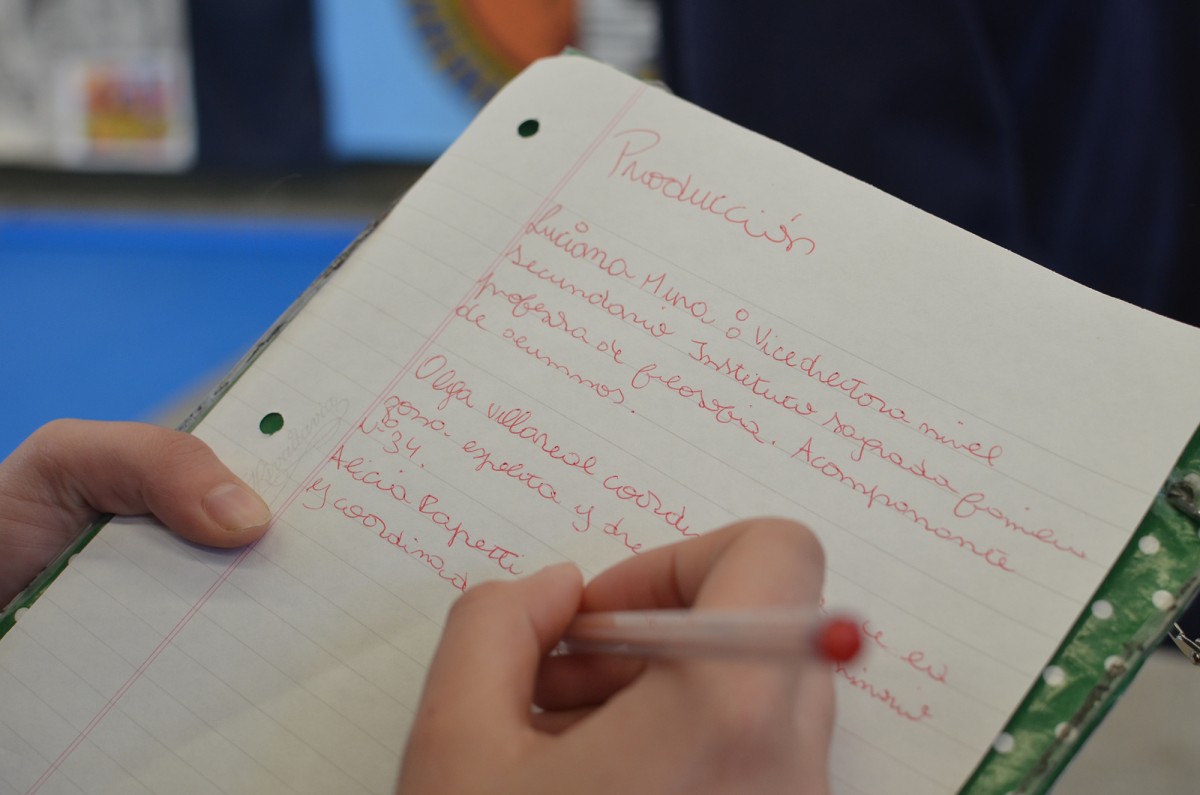 Producción
Luciana Mina: Vicedirectora nivel
secundario Instituto sagrada familia
profesora de filosofia. Acompanante
de alumnos.
Olga villareal coord
gosa. y dre
N° 34.
Alicia Rapetti
y coordinad